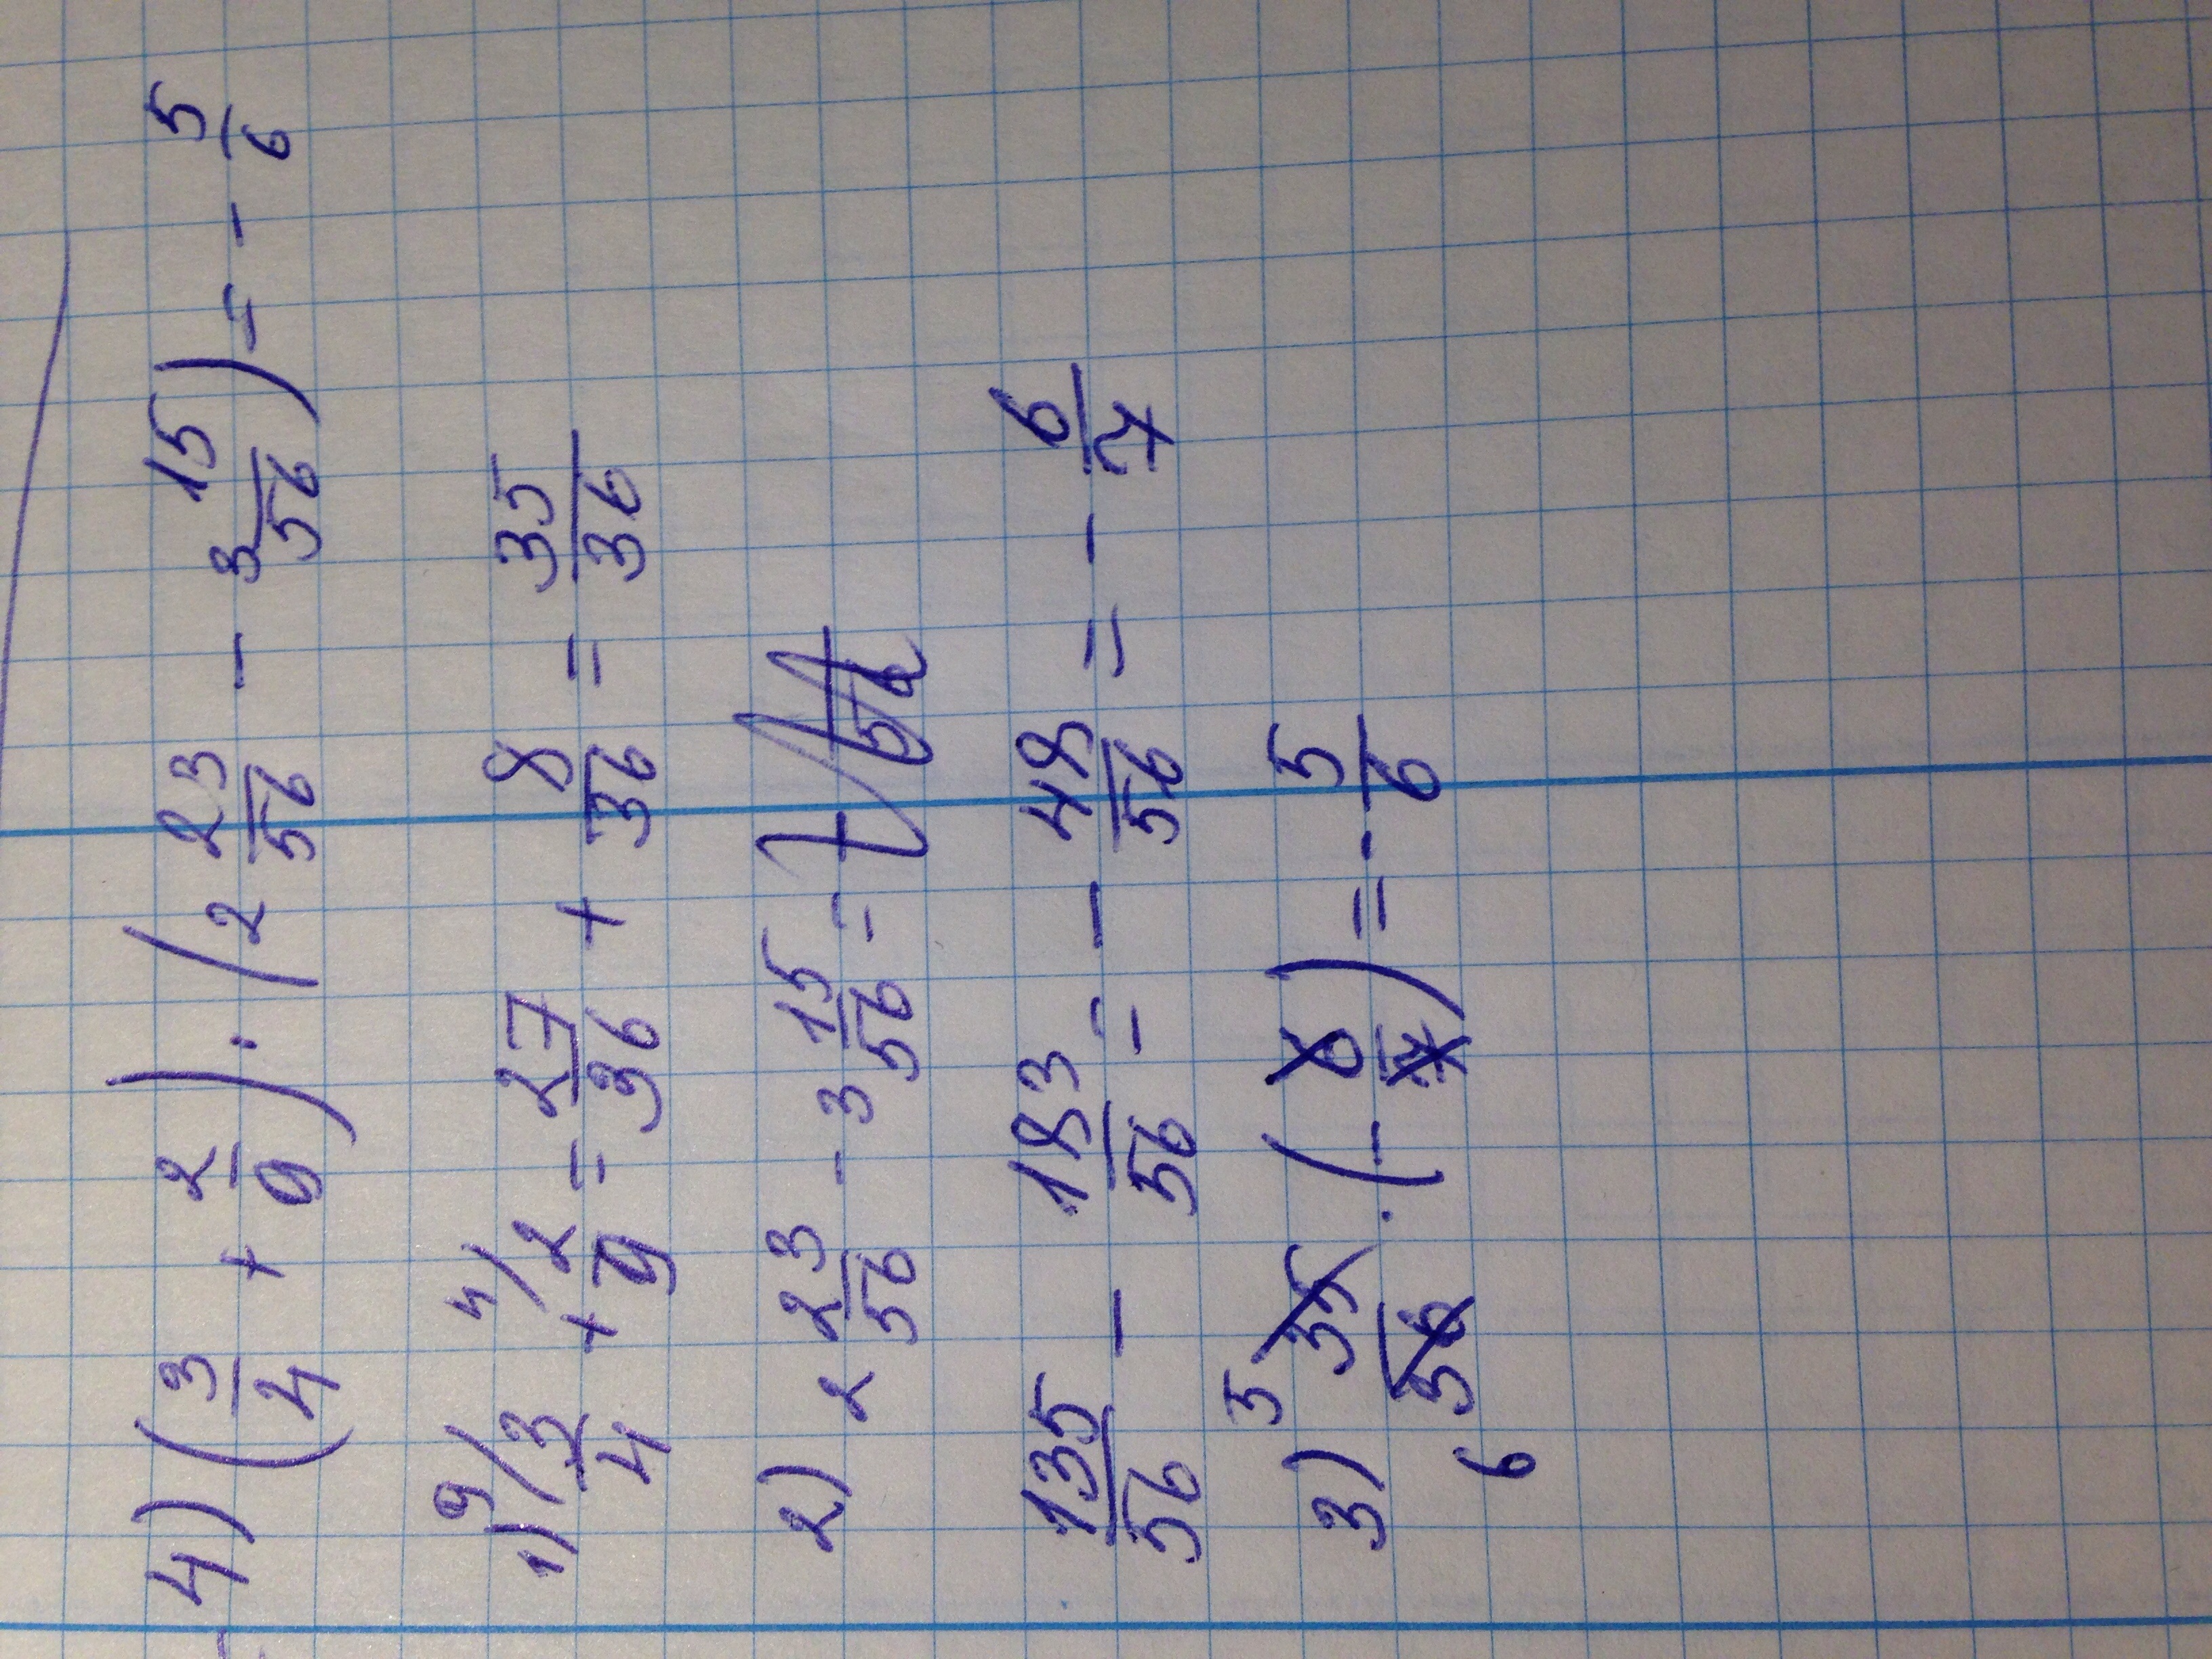 4) (3/4 + 2/9) · (2 23/56 - 3 15/56) = - 5/6
1) 9/ 3/4 + 4/ 2/9 = 27/36 + 8/36 = 35/36
2) 2 23/56 - 3 15/56 =
135/56 - 183/56 = - 48/56 = - 6/7
3) 5 35/36 6 · (- 6/7) = - 5/6